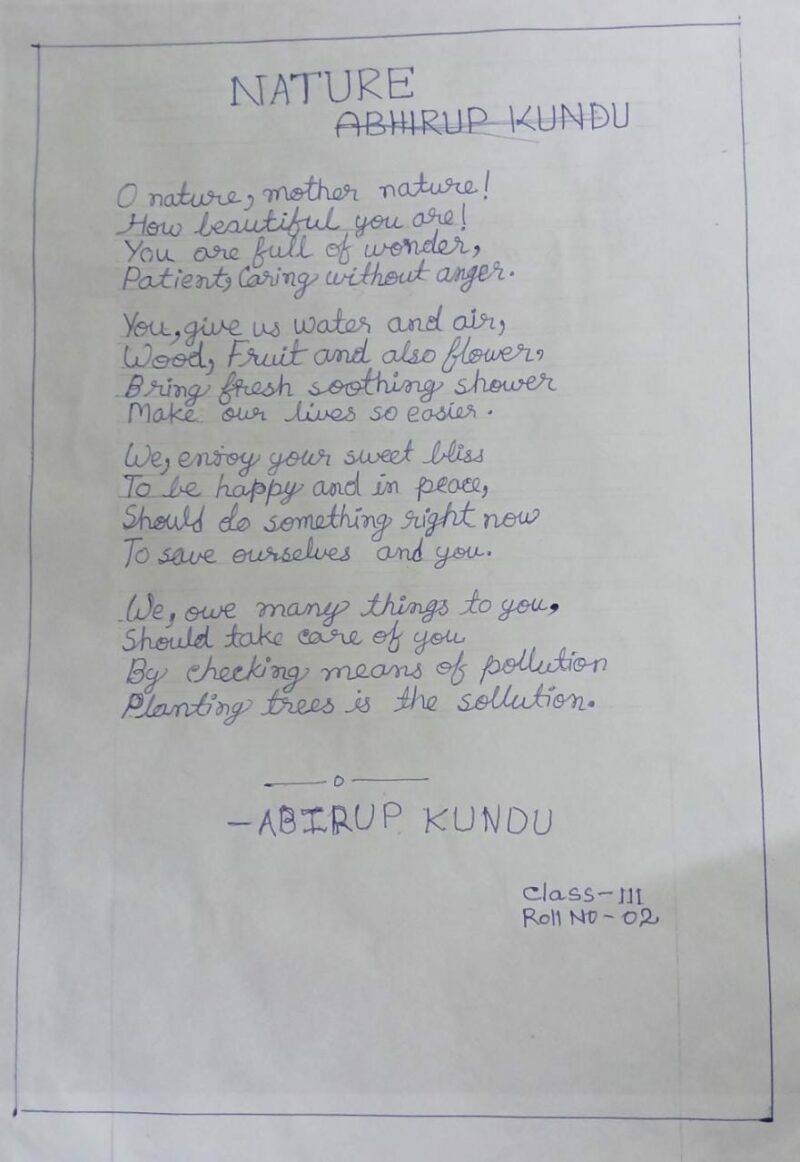 NATURE
ABHIRUP KUNDU
O nature, mother nature!
How beautiful you are!
You are full of wonder,
Patient, Caring without anger.
You, give us water and air,
Wood, Fruit and also flower,
Bring fresh soothing shower
Make our lives so easier.
We, enjoy your sweet bliss
To be happy and in peace,
Should do something right now
To save ourselves and you.
We, owe many things to you,
Should take care of you
By checking means of pollution
Planting trees is the sollution.
—0—
-ABIRUP KUNDU
Class-III
Roll No-02